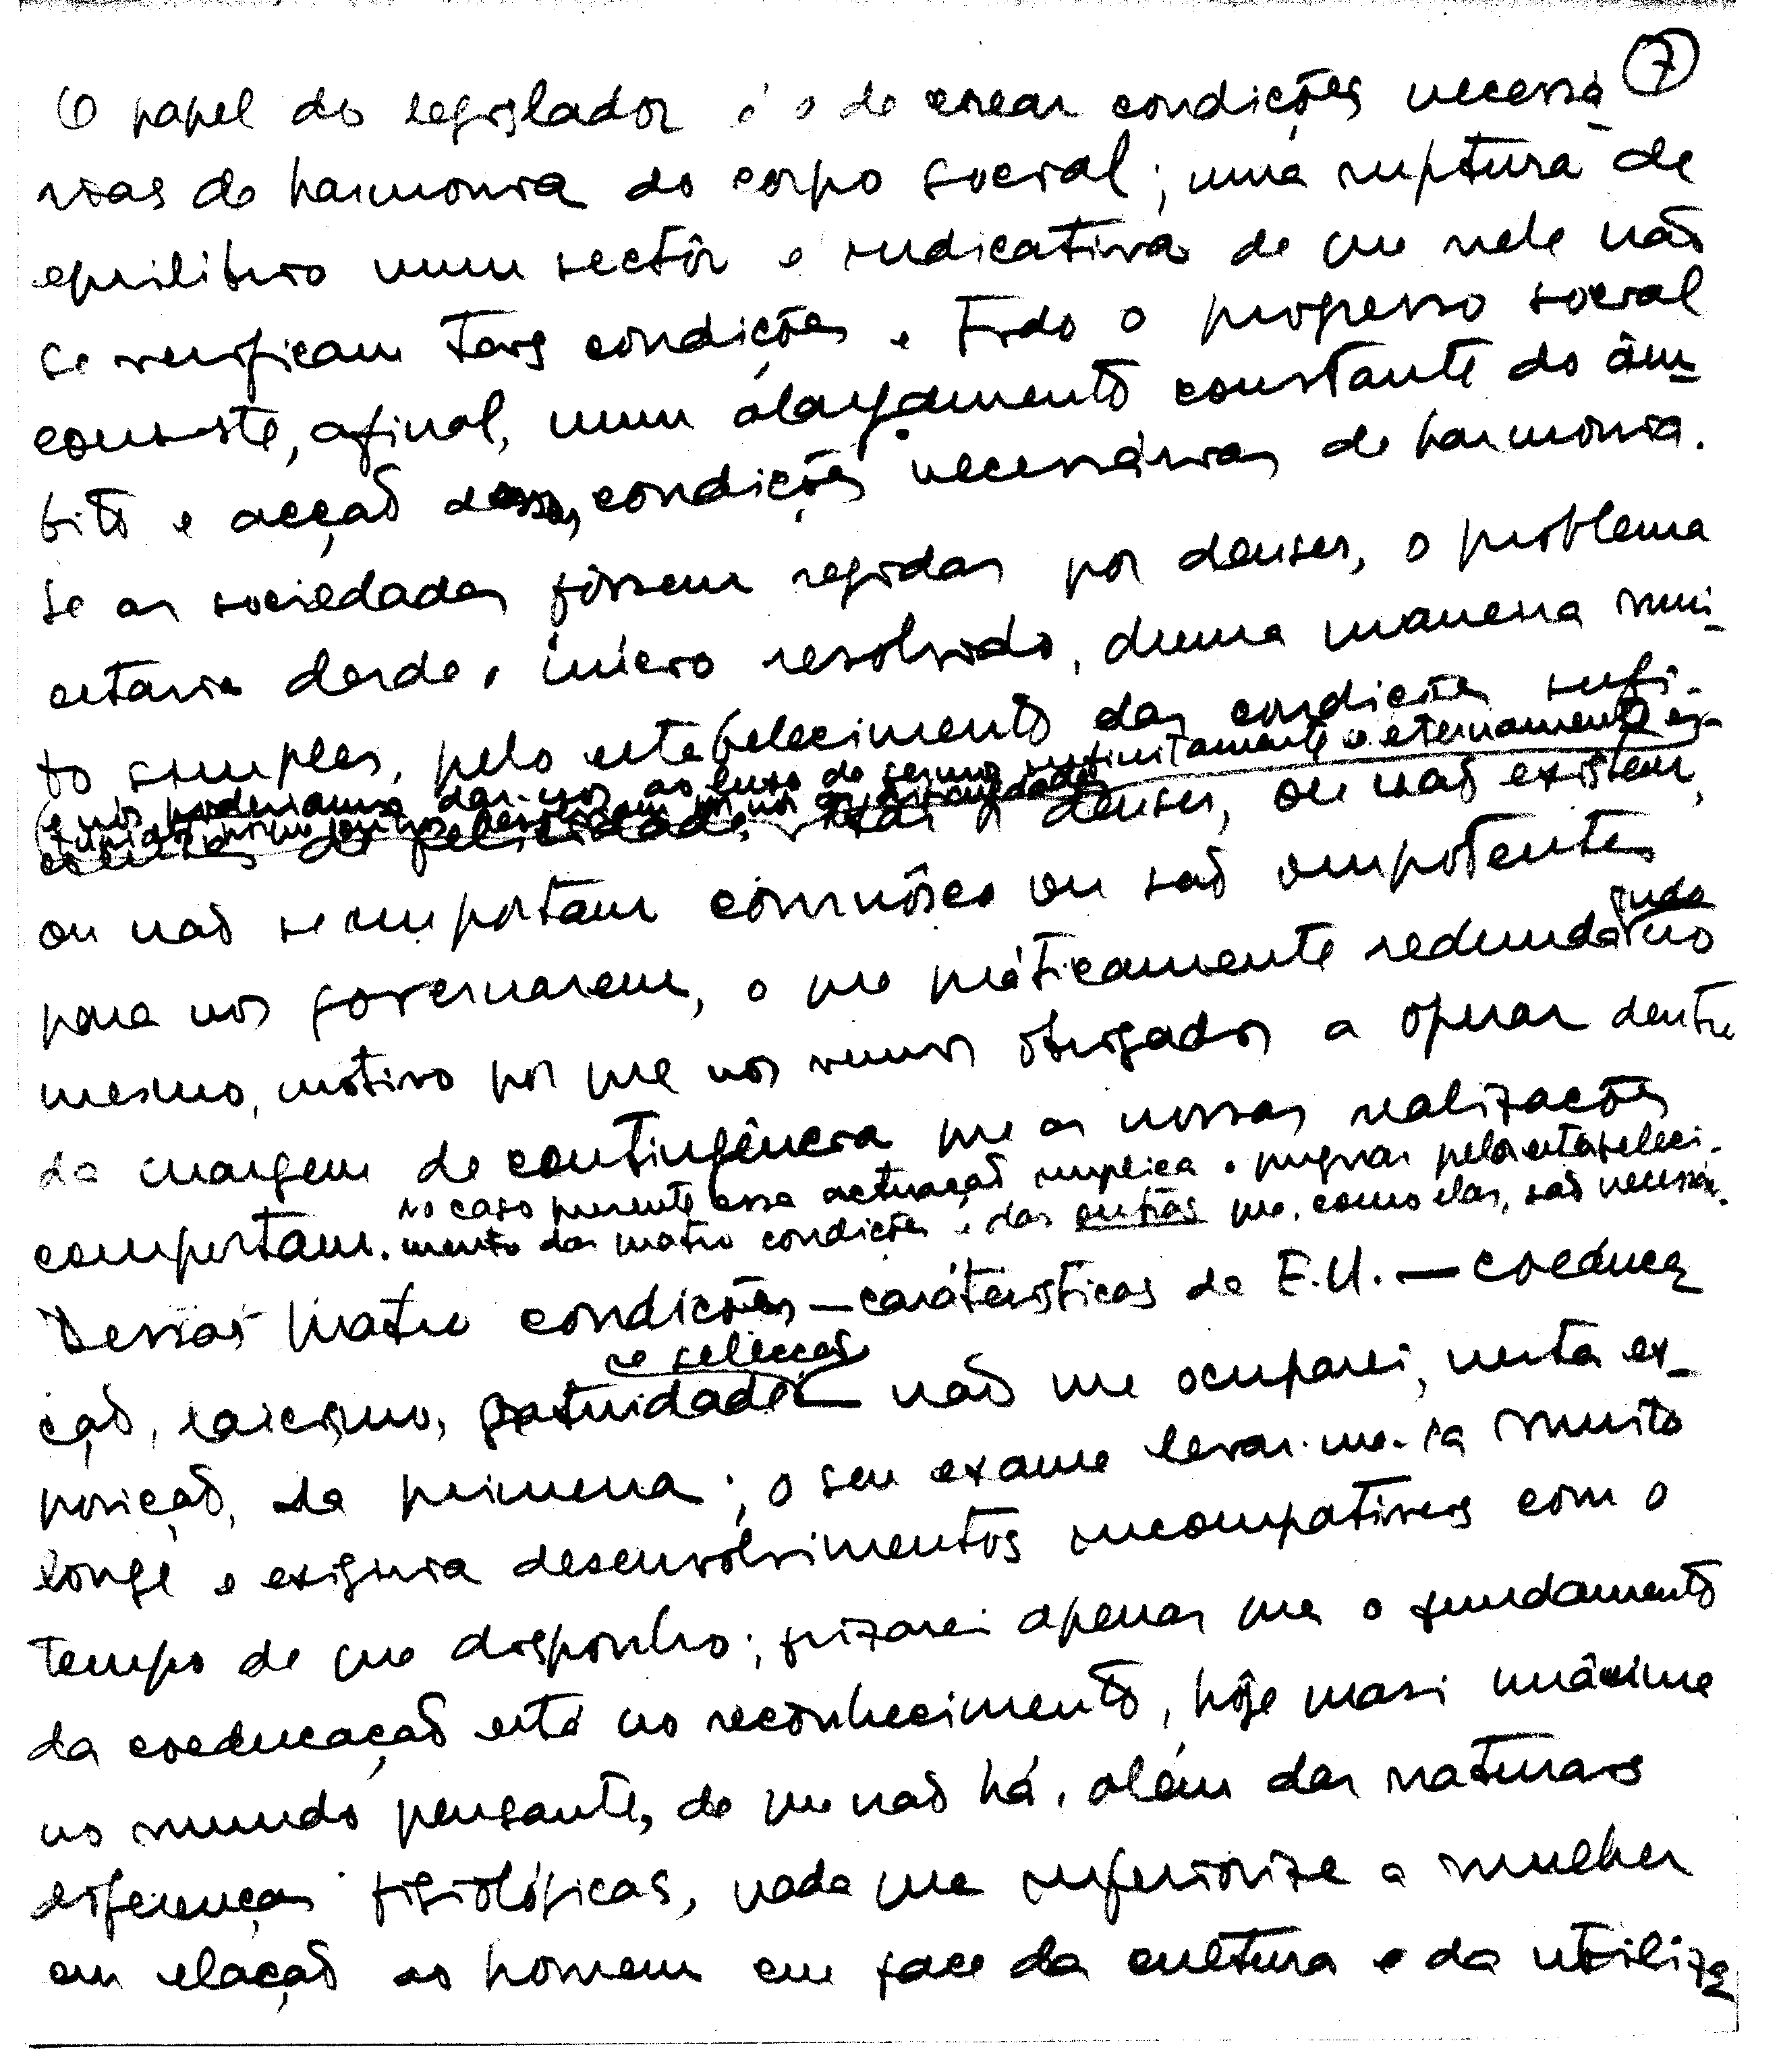 7
O papel do legislador é o de crear condições necessá-
rias de harmonia do corpo social; uma ruptura de
equilibrio num sectôr é indicativa de que nele não
se verificam tais condições. Todo o progresso social
consiste, afinal, num alargamento constante do âm-
bito e acção dessas condições necessárias de harmonia.
Se as sociedades fôssem regidas por deuses, o problema
estaria desde o início resolvido, duma maneira mui-
to simples, pelo estabelecimento das condições sufi-
(e nós poderiamos dar-nos ao luxo de sermos infinitamente e eternamente es-
cientes de felicidade. Mas os deuses, ou não existem,
ou não se importam comnôsco ou são impotentes
para nos governarem, o que práticamente redunda tudo no
mesmo, motivo por que nos vemos obrigados a operar dentro
da margem de contingência que as nossas realizações
comportam. No caso presente essa actuação implica o pugnar pelo estabeleci-
mento das quatro condições e das outras que, como elas, são necessárias.
Dessas quatro condições — caráterísticas da E.U. — coeduca
ção, laicismo, gratuidade e selecção — não me ocuparei, nesta ex-
posição, da primeira; o seu exame levar-me-ia muito
longe e exigiria desenvolvimentos incompatíveis com o
tempo de que disponho; frizarei apenas que o fundamento
da coeducação está no reconhecimento, hôje quasi unânime
no mundo pensante, de que não há, além das naturais
diferenças fisiológicas, nada que inferiorize a mulher
em relação ao homem em face da cultura e da utiliza